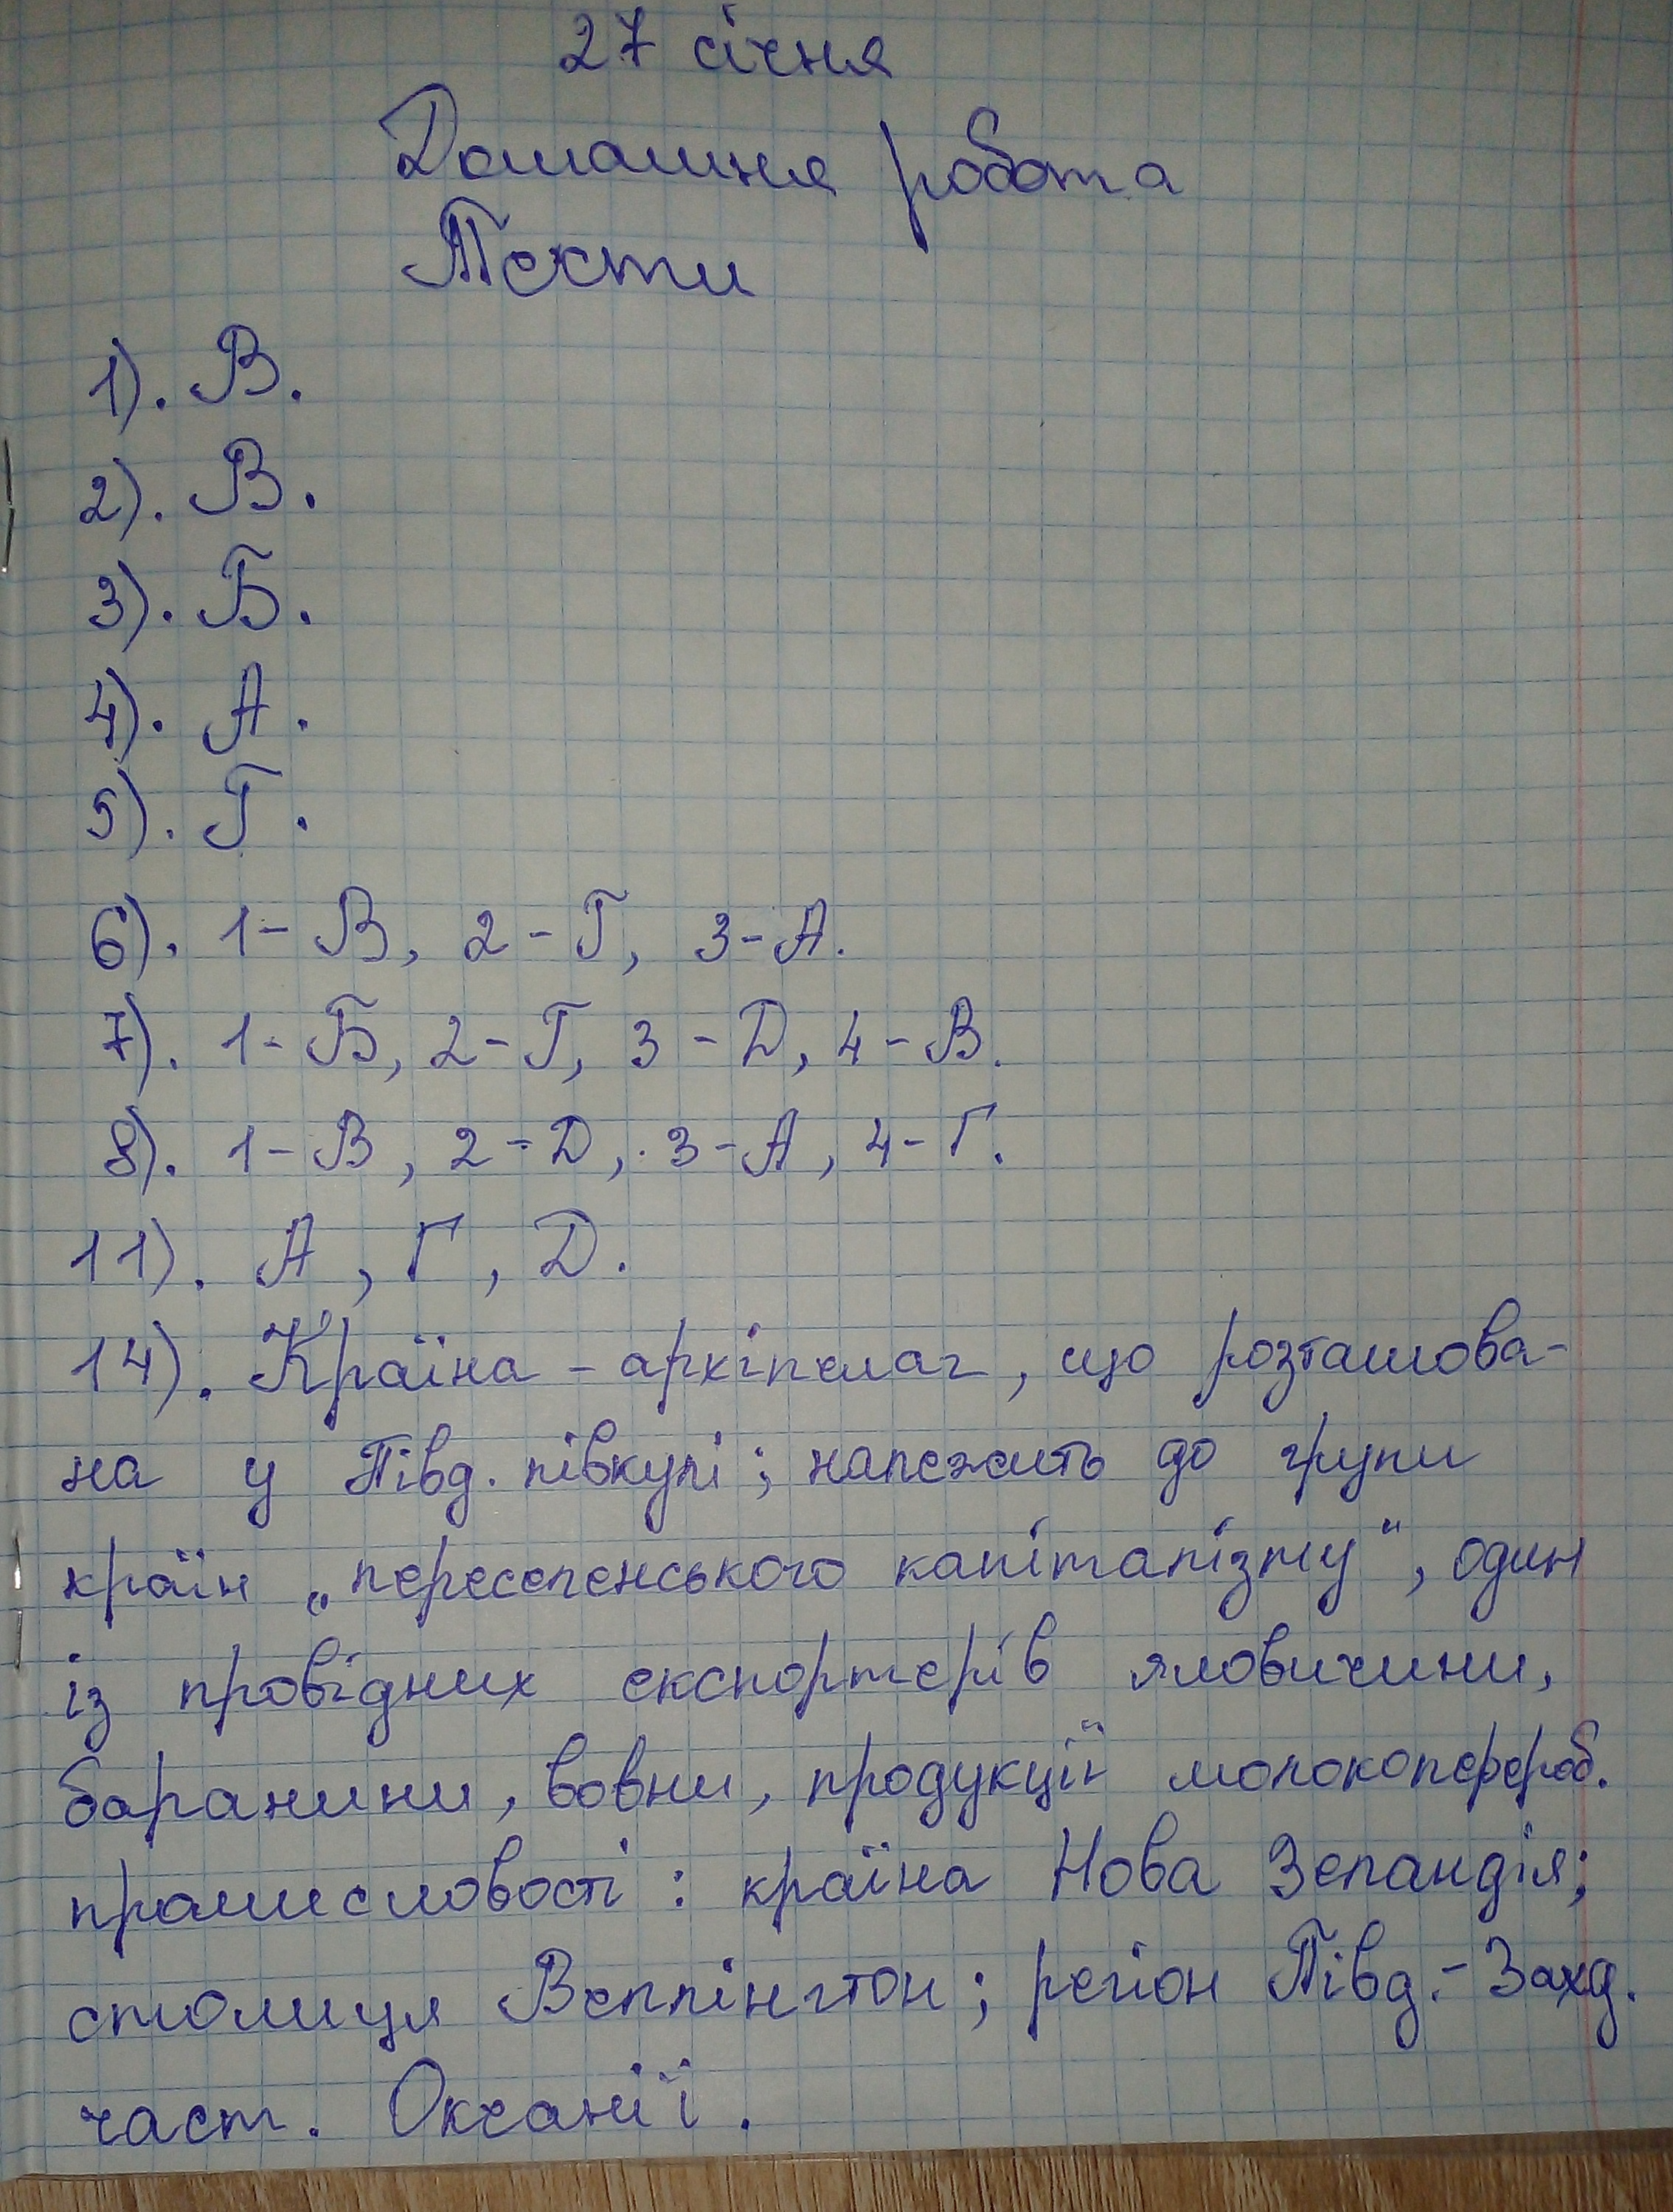 27 січня
Домашня робота
Тести
1). В.
2). В.
3). Б.
4). А.
5). Г.
6). 1- В, 2 - Г, 3-А.
7). 1- Б, 2-Г, 3 - Д, 4 - В.
8). 1- В, 2 - Д, 3-А, 4-Г.
11). А, Г, Д.
14). Країна - архіпелаг, що розташова-
на у Півд. півкулі; належить до групи
країн „переселенського капіталізму“, один
із провідних експортерів яловичини,
баранини, вовни, продукції молокоперероб.
промисловості: країна Нова Зеландія;
столиця Веллінгтон; регіон Півд.- Захд.
част. Океанії.